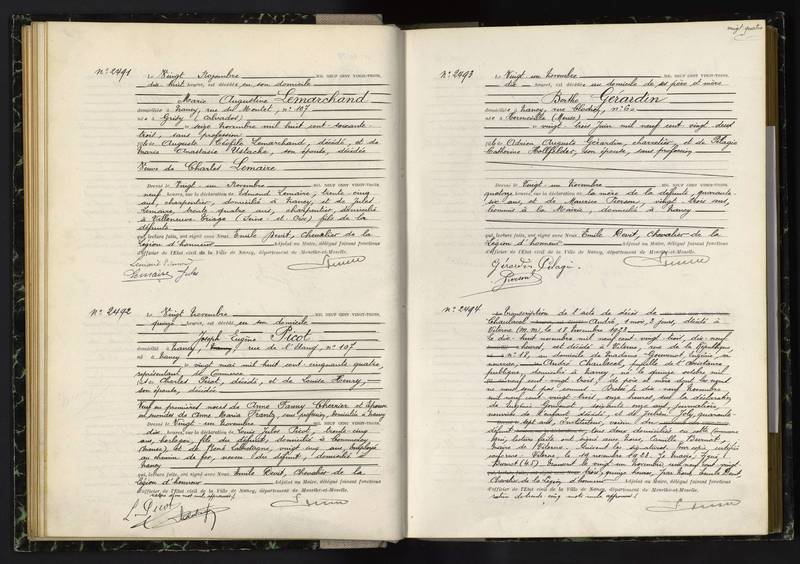 vingt quatre
N° 2491
Le Vingt Novembre MIL NEUF CENT VINGT-TROIS,
dix huit heures, est décédée en son domicile
Marie Augustine Lemarchand
domiciliée à Nancy, rue du Montet, n° 107
née à Grisy (Calvados)
seize Novembre mil huit cent soixante
trois, sans profession
fille de Auguste Théophile Lemarchand, décédé, et de
Marie Anastasie Eustache, son épouse, décédée
Veuve de Charles Lemaire
Dressé le Vingt un Novembre MIL NEUF CENT VINGT-TROIS,
neuf heures, sur la déclaration de Edmond Lemaire, trente cinq
ans, charpentier, domicilié à Nancy, et de Jules
Lemaire, trente quatre ans, charpentier, domicilié
à Villeneuve (Seine et Oise) fils de la
défunte
qui, lecture faite, ont signé avec Nous Emile Devit, Chevalier de la
Légion d'honneur Adjoint au Maire, délégué faisant fonctions
d'officier de l'Etat civil de la Ville de Nancy, département de Meurthe-et-Moselle.
Lemaire Jules
N° 2492
Le Vingt Novembre MIL NEUF CENT VINGT-TROIS,
quinze heures, est décédé en son domicile
Joseph Eugène Picot
domicilié à Nancy, rue de l'Etang, n° 107
né à Nancy
vingt mai mil huit cent cinquante quatre,
représentant de commerce
fils de Charles Picot, décédé, et de Louise Henry,
son épouse, décédée
Veuf en premières noces de Anne Fanny Cherrier et époux
en secondes de Anne Marie Frantz, sans profession, domiciliée à Nancy
Dressé le Vingt un Novembre MIL NEUF CENT VINGT-TROIS,
dix heures, sur la déclaration de Louis Jules Picot, trente cinq
ans, horloger, fils du défunt, domicilié à Commercy
(Meuse) et de René, vingt cinq ans, employé
au chemin de fer, neveu du défunt, domicilié à
Nancy
qui, lecture faite, ont signé avec Nous Emile Devit, Chevalier de la
Légion d'honneur Adjoint au Maire, délégué faisant fonctions
d'officier de l'Etat civil de la Ville de Nancy, département de Meurthe-et-Moselle.
L. Picot
N° 2493
Le Vingt un Novembre MIL NEUF CENT VINGT-TROIS,
dix heures, est décédée au domicile de ses père et mère
Berthe Gérardin
domiciliée à Nancy, rue n° 60
née à Cornieville (Meuse)
vingt trois Juin mil neuf cent vingt deux
fille de Adrien Auguste Gérardin, charretier, et de Pélagie
Catherine Holtfelder, son épouse, sans profession
Dressé le Vingt un Novembre MIL NEUF CENT VINGT-TROIS,
quatorze heures, sur la déclaration de la mère de la défunte, quarante
six ans, et de Maurice Pierson, vingt trois ans,
commis à la Mairie, domicilié à Nancy
qui, lecture faite, ont signé avec Nous Emile Devit, Chevalier de la
Légion d'honneur Adjoint au Maire, délégué faisant fonctions
d'officier de l'Etat civil de la Ville de Nancy, département de Meurthe-et-Moselle.
Gérardin Pélagie
Pierson
N° 2494
Transcription de l'acte de décès de
André, 1 mois, 2 jours, décédé à
Viterne (M. M.) le 18 Novembre 1923
Le dix huit novembre mil neuf cent vingt trois, dix neuf
heures, est décédé à Viterne, rue de la République,
n° 18, au domicile de Madame Eugénie,
nourrice, André, pupille de l'Assistance
publique, domicilié à Nancy, né le quinze octobre mil
neuf cent vingt trois, de père et mère dont les noms
ne nous sont pas connus. Dressé le dix neuf Novembre
mil neuf cent vingt trois, onze heures, sur la déclaration
de ans, journalière,
nourrice de l'enfant décédé, et de Julien Joly, quarante
sept ans, instituteur, voisin du
défunt, tous deux domiciliés en cette commune
qui, lecture faite ont signé avec nous, Camille Bernard,
Maire de Viterne. Suivent les signatures. Pour copie certifiée
conforme. Viterne, le 19 novembre 1923. Le Maire, signé :
Bernard. Transcrit le vingt un Novembre mil neuf cent vingt
trois, quinze heures, par Nous Emile Devit,
Chevalier de la Légion d'honneur Adjoint au Maire, délégué faisant fonctions
d'officier de l'Etat civil de la Ville de Nancy, département de Meurthe-et-Moselle.